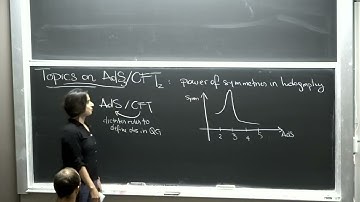 Topics on AdS3/CFT2 : power of symmetries in holography
AdS/CFT
dictates rules to
define obs. in QG
Span
2 3 4 5 AdS